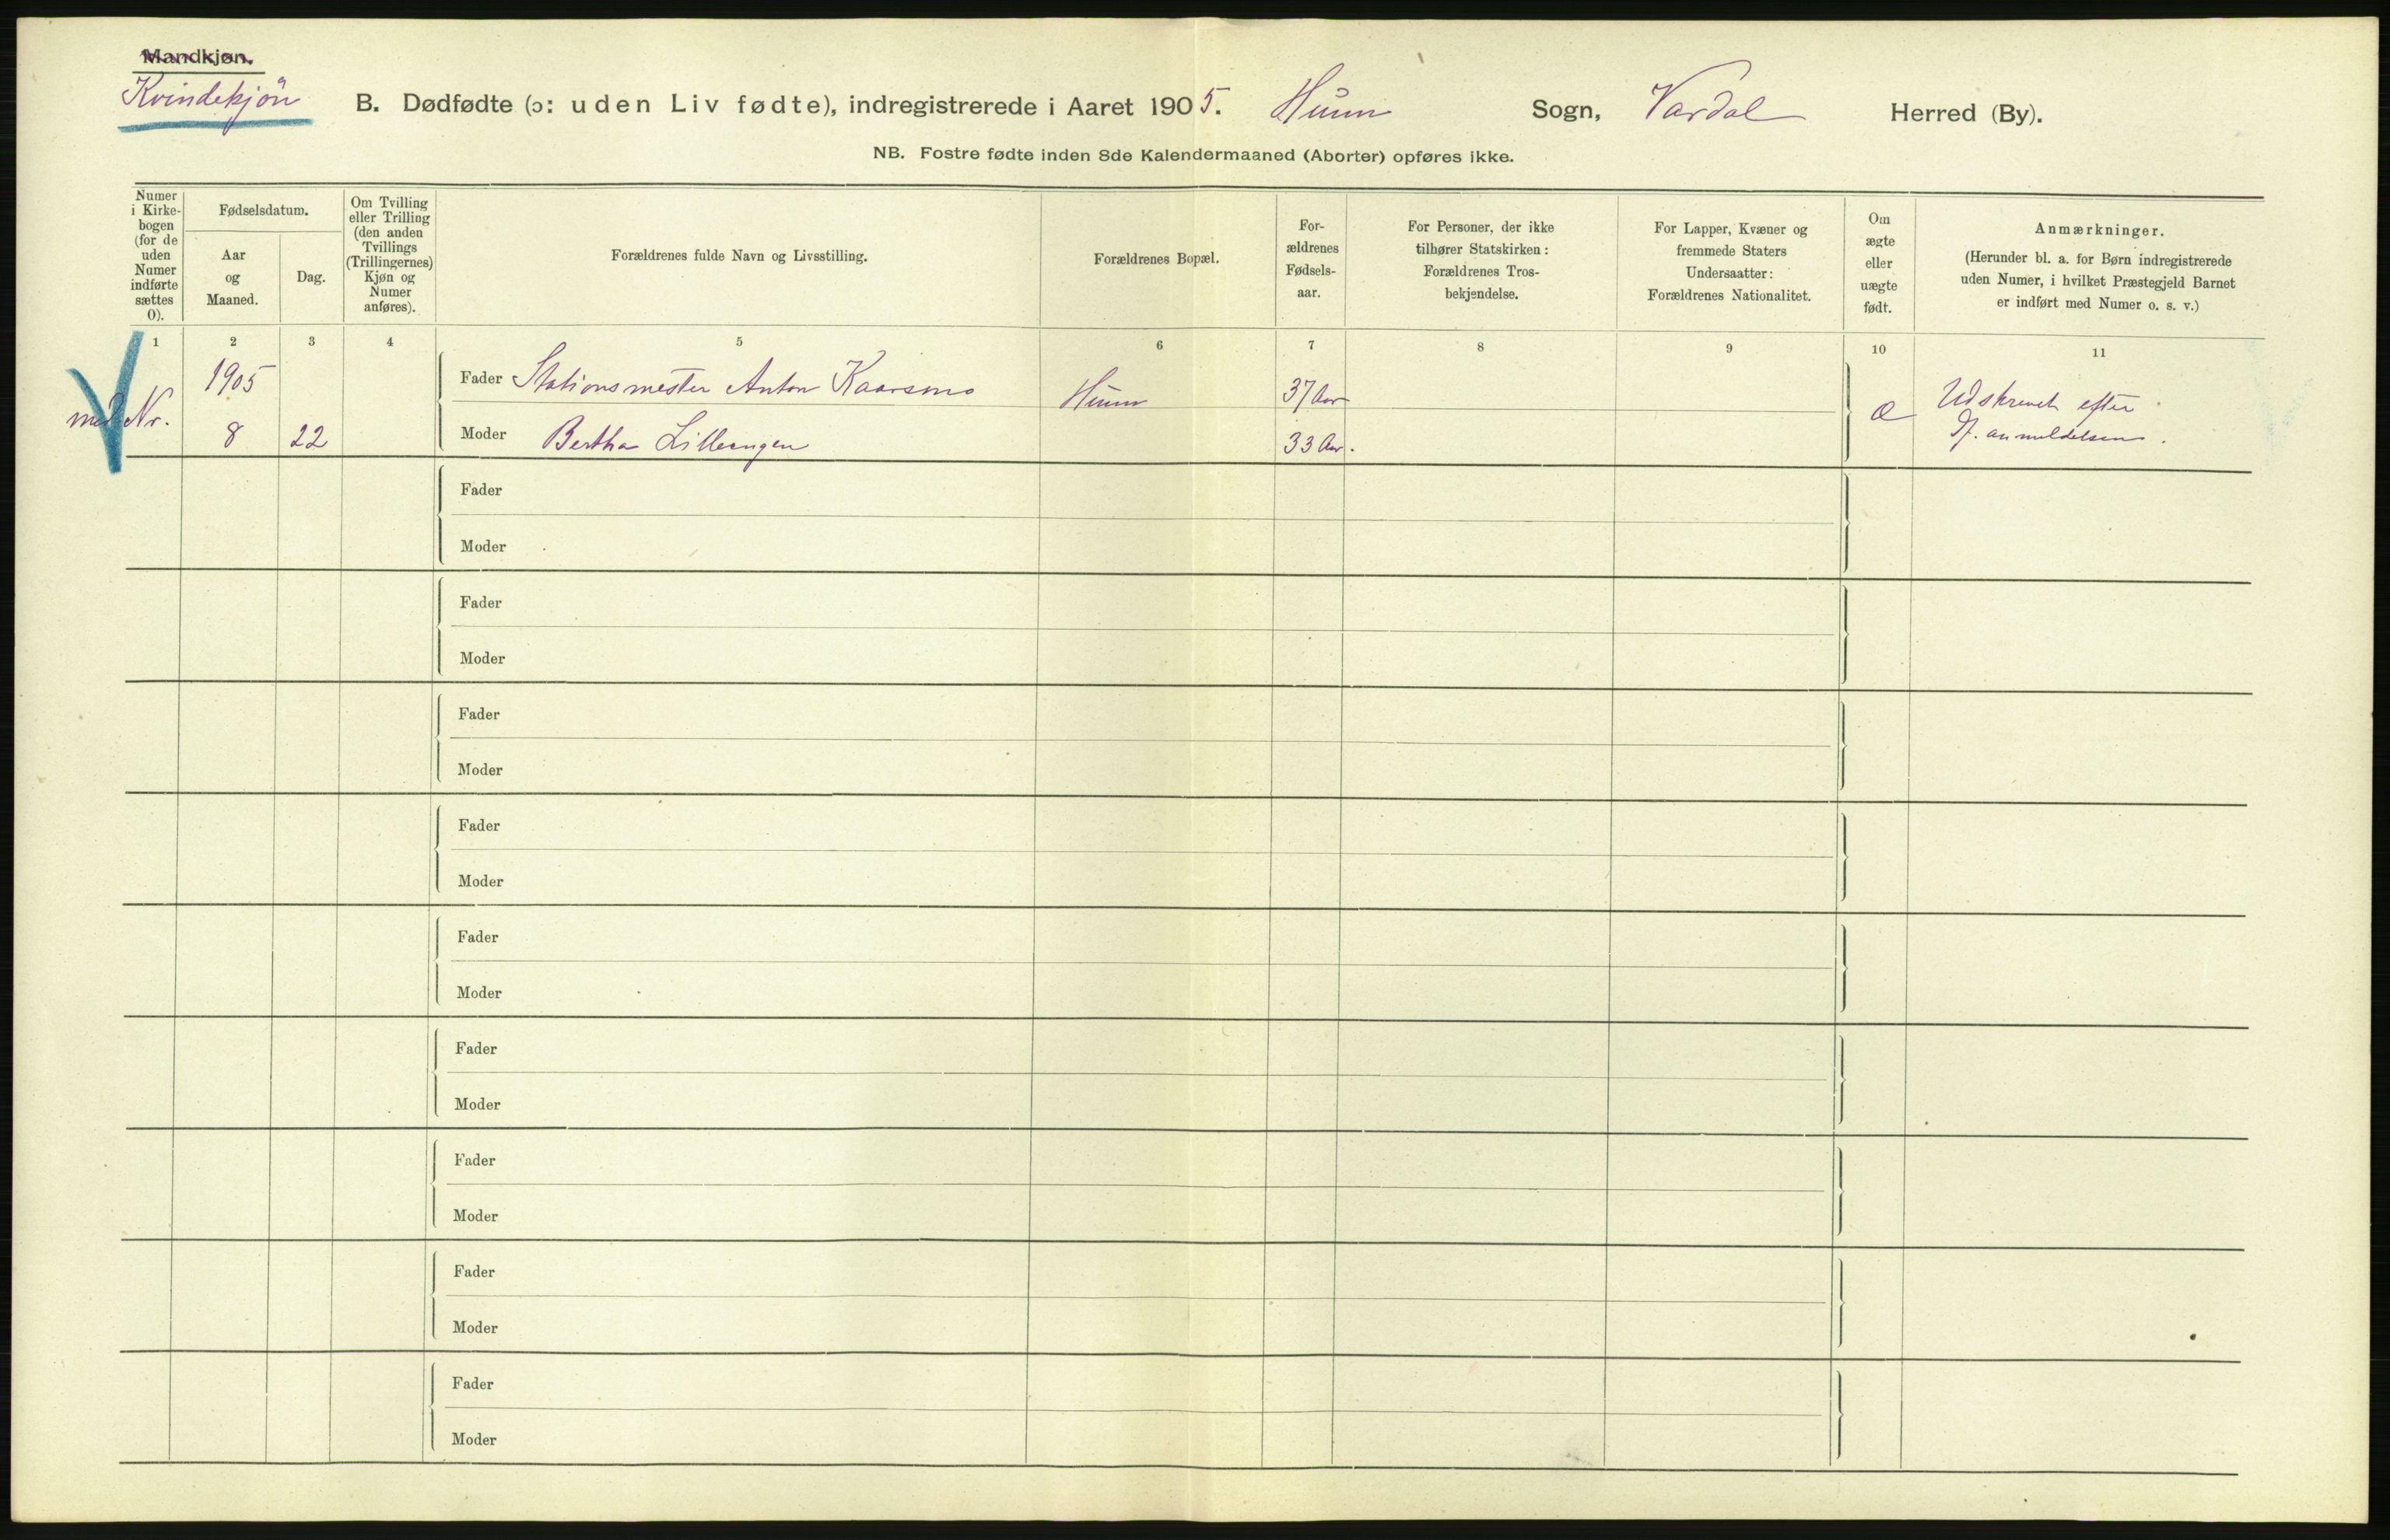 Mandkjøn.
Kvindekjön
B. Dødfødte (ɔ: uden Liv fødte), indregistrerede i Aaret 1905. Hunn Sogn, Vardal Herred (By).
NB. Fostre fødte inden 8de Kalendermaaned (Aborter) opføres ikke.
Numer i Kirke-bogen (for de uden Numer indførte sættes 0).
Fødselsdatum.
Aar og Maaned.
Dag.
Om Tvilling eller Trilling (den anden Tvillings (Trillingernes) Kjøn og Numer anføres).
Forældrenes fulde Navn og Livsstilling.
Forældrenes Bopæl.
For-ældrenes Fødsels-aar.
For Personer, der ikke tilhører Statskirken: Forældrenes Tros-bekjendelse.
For Lapper, Kvæner og fremmede Staters Undersaatter: Forældrenes Nationalitet.
Om ægte eller uægte født.
Anmærkninger.
(Herunder bl. a. for Børn indregistrerede uden Numer, i hvilket Præstegjeld Barnet er indført med Numer o. s. v.)
1 2 3 4 5 6 7 8 9 10 11
1905
Fader Stationsmester Anton Kaarsmo Hunn 37 Aar
med Nr. 8 22
Moder Bertha Lilleengen 33 Aar.
Æ
Udskrevet efter
J. anmeldelsen.
Fader
Moder
Fader
Moder
Fader
Moder
Fader
Moder
Fader
Moder
Fader
Moder
Fader
Moder
Fader
Moder
Fader
Moder